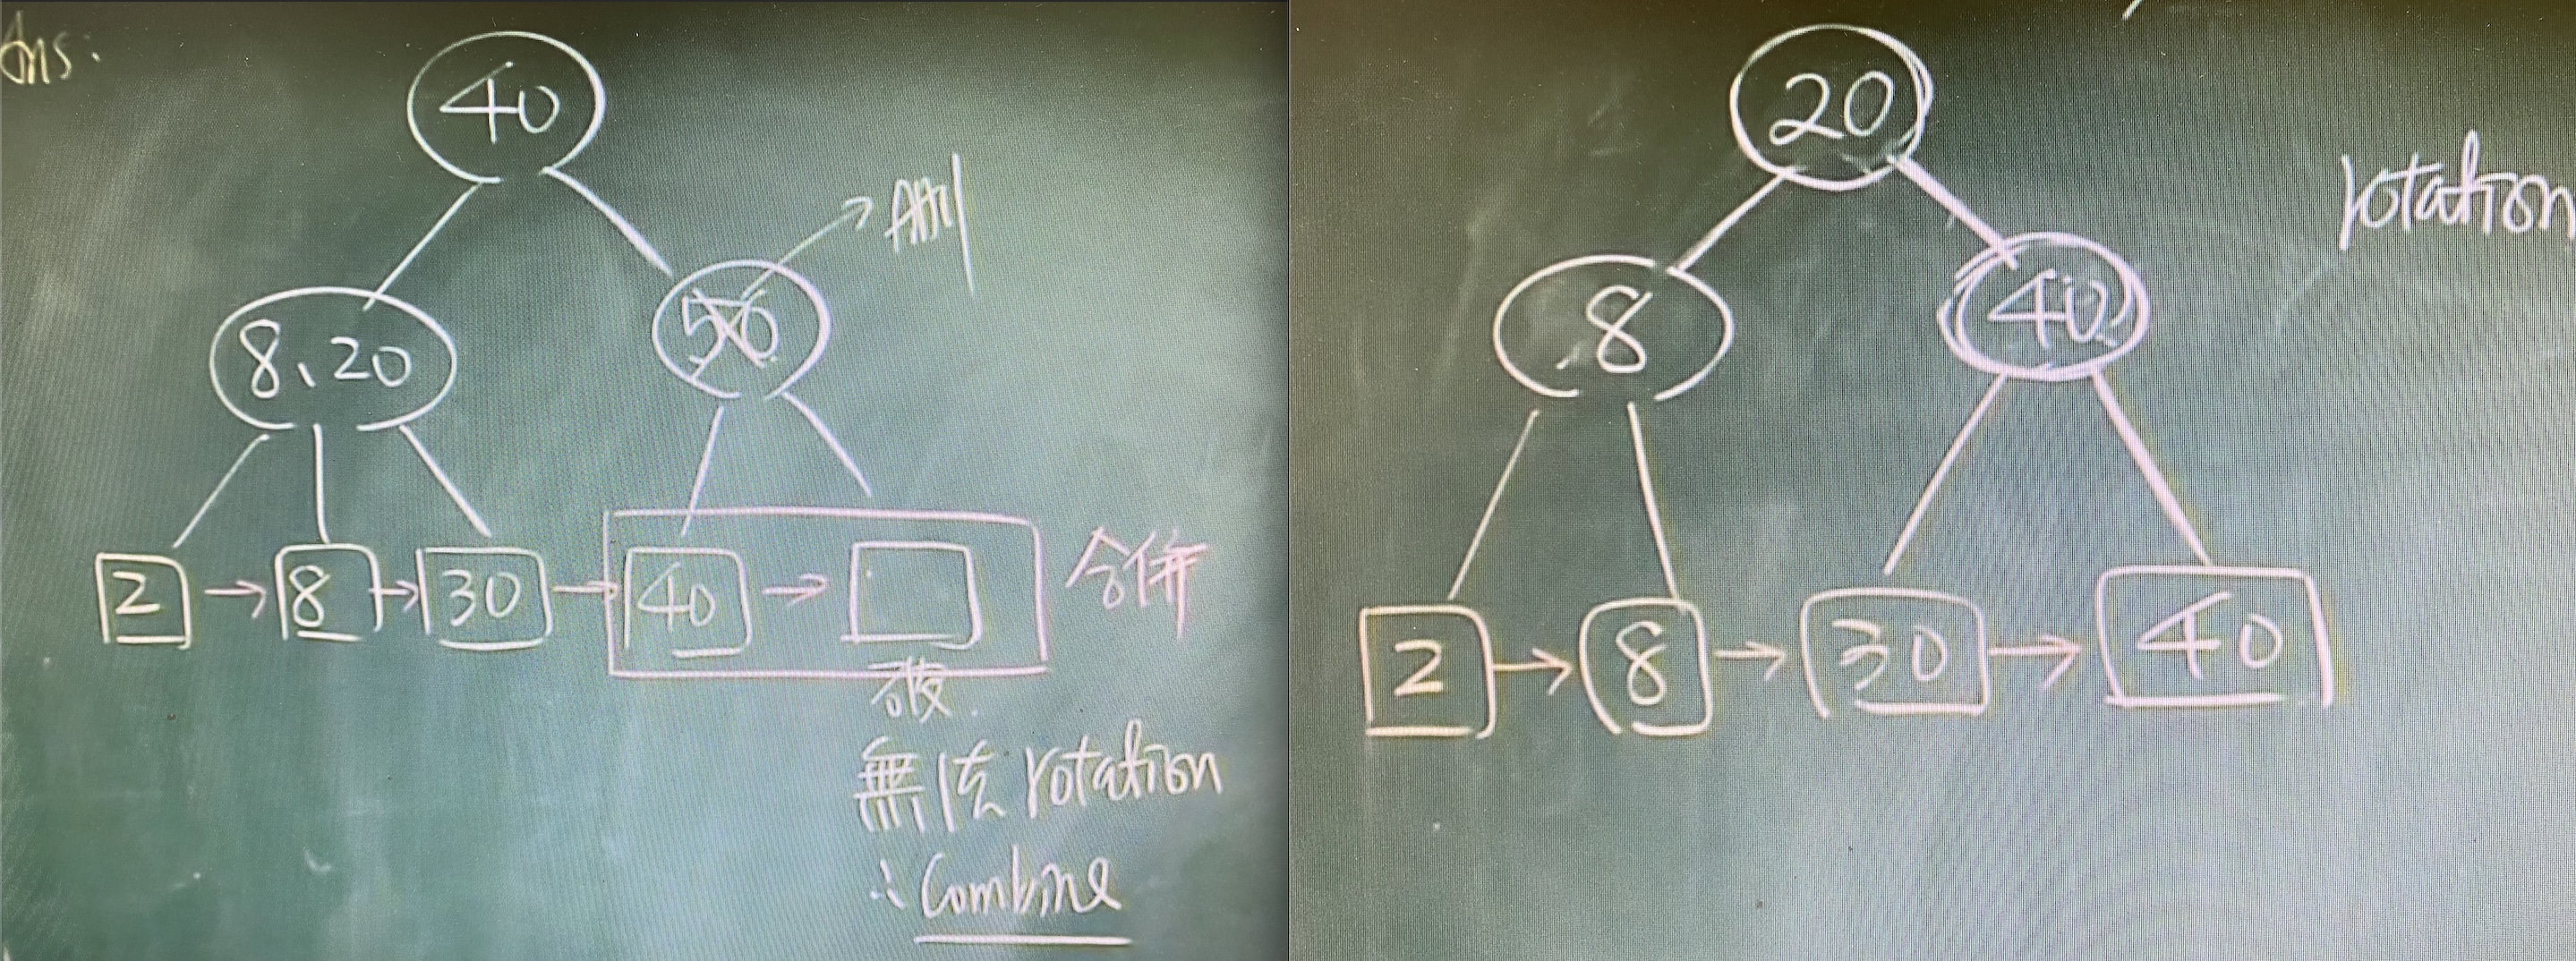 Ans:
40
8、20
50
刪
2 → 8 → 30 → 40 →
合併
破
無法 rotation
∴ Combine
20
rotation
8
40
2 → 8 → 30 → 40